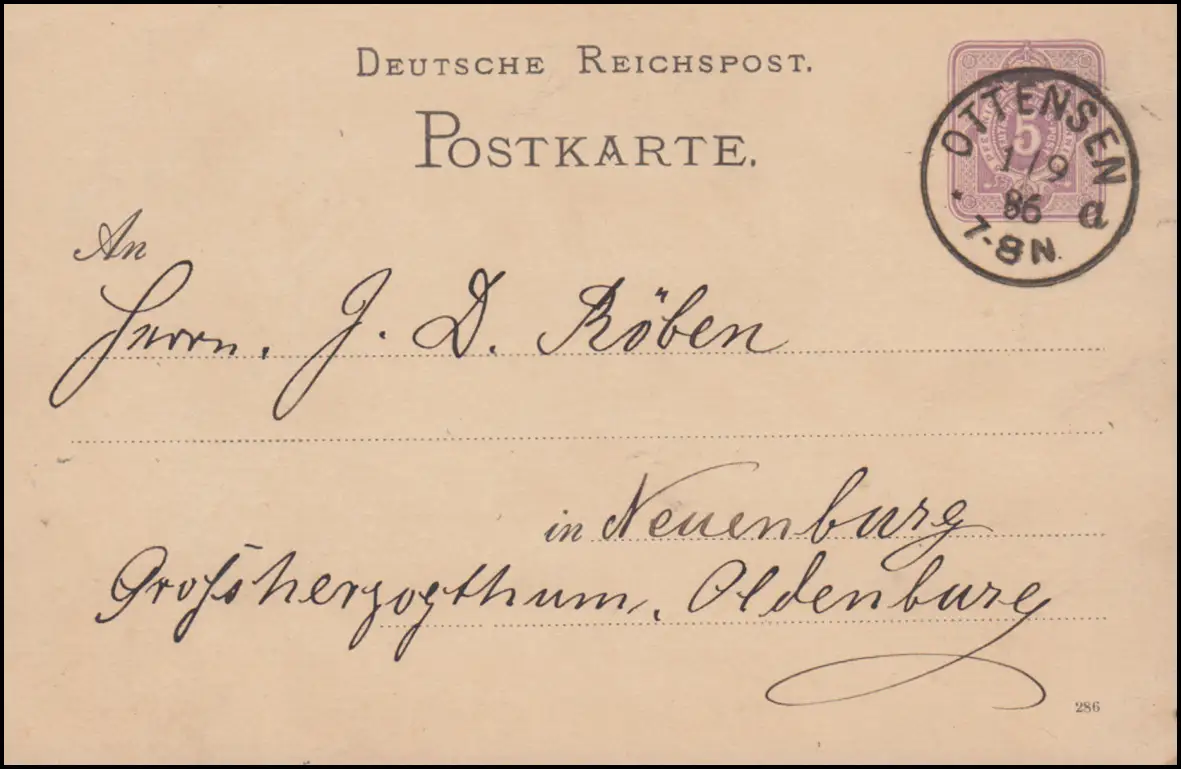 DEUTSCHE REICHSPOST.
POSTKARTE.
5
OTTENSEN
1/9
86
* a
7-8N.
An
Herrn. J. D. Röben
in Neuenburg
Großherzogthum, Oldenburg
286